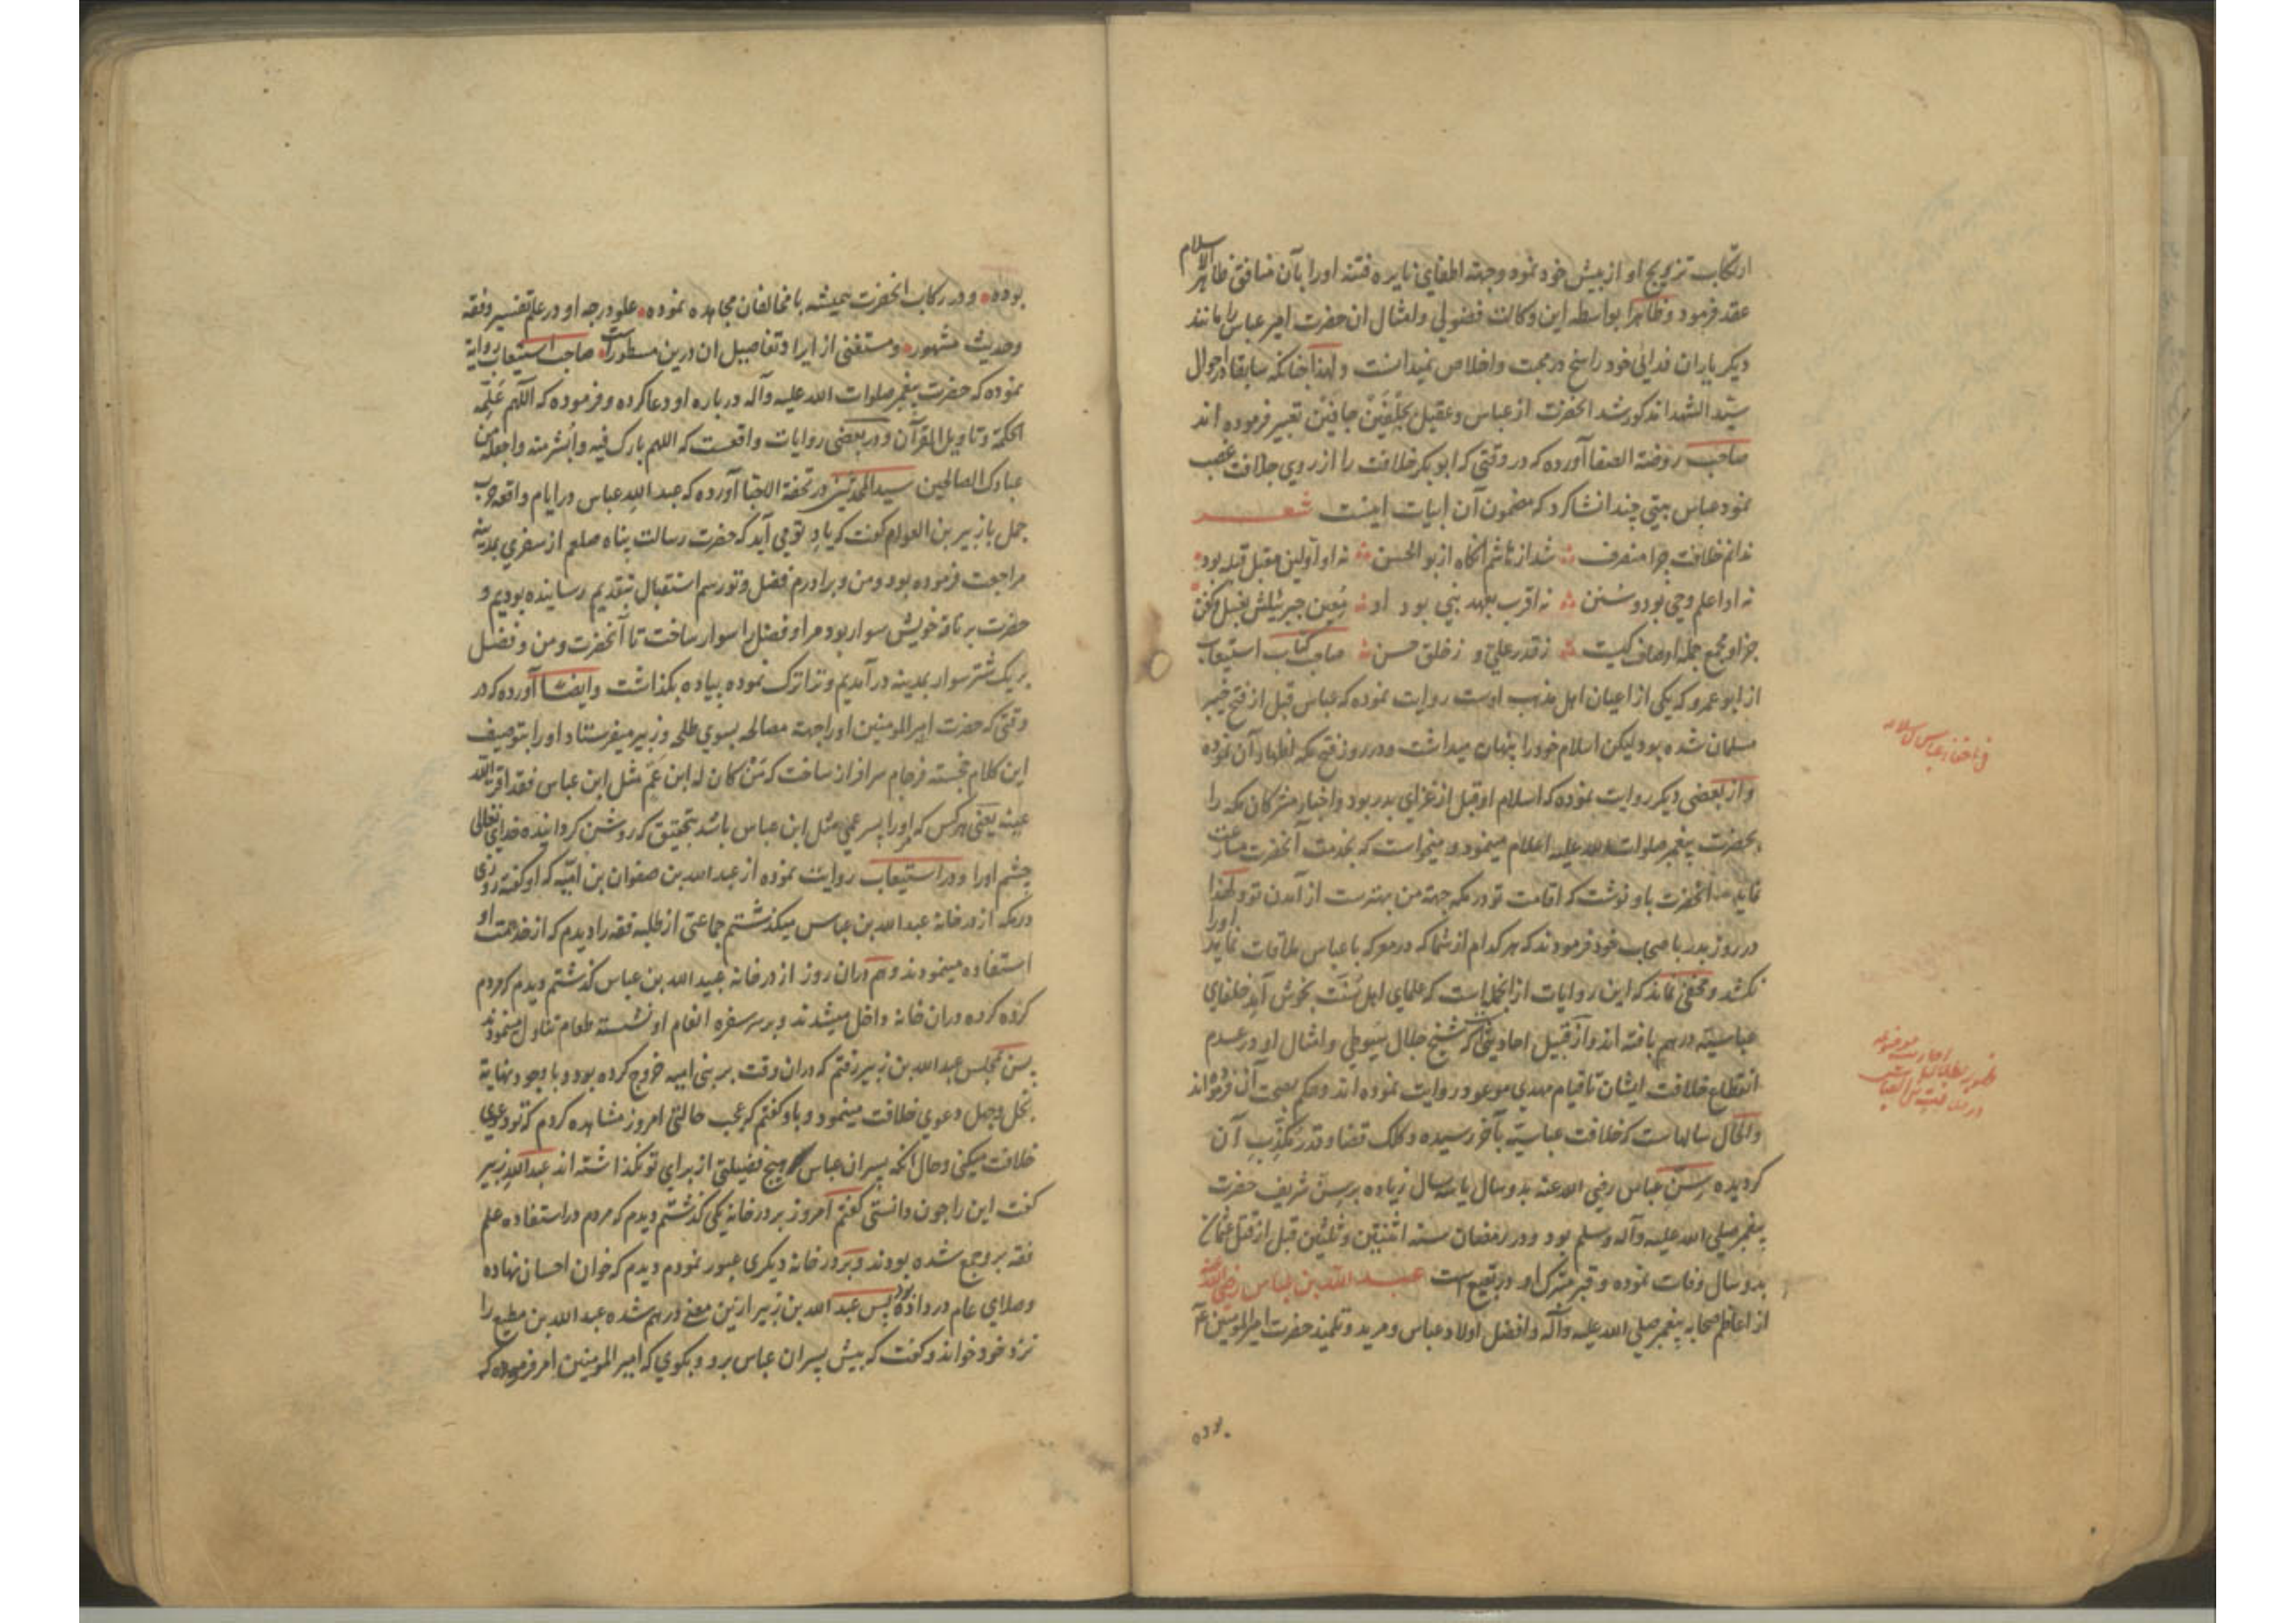 ارتکاب تزویج او از پیش خود نمود و جهة اطفای نایره فتنه او را بآن منافق ظاهر الاسلام
عقد فرمود و ظاهرا بواسطه این وکالت فضولی و امثال ان حضرت امیر عباس را مانند
دیکر یاران فدائی خود راسخ در محبت و اخلاص نمیدانست و لهذا چنانکه سابقا در احوال
سید الشهدا مذکور شد انحضرت از عباس و عقیل بجلفین جافین تعبیر فرموده اند
صاحب روضة الصفا آورده که در وقتی که ابو بکر خلافت را از روی جلافت غصب
نمود عباس بیتی چند انشا کرد که مضمون آن ابیات اینست شعر
ندانم خلافت چرا منصرف شد از هاشم انکاه از بو الحسن نه او اولین مقبل قبله بود
نه او اعلم وحی بود و سنن نه اقرب بعهد نبی بود او معین جبرئیلش بغسل و کفن
جز او مجمع جمله اوصاف کیست ز قدر علی و ز خلق حسن صاحب کتاب استیعاب
از ابو عمرو که یکی از اعیان اهل مذهب اوست روایت نموده که عباس قبل از فتح خیبر
مسلمان شده بود لیکن اسلام خود را پنهان میداشت و در روز فتح مکه اظهار آن نموده
و از بعضی دیکر روایت نموده که اسلام او قبل از غزای بدر بود و اخبار مشرکان مکه را
بحضرت پیغمبر صلوات الله علیه اعلام مینمود و میخواست که بخدمت آنحضرت مبادرت
نماید انحضرت باو نوشت که اقامت تو در مکه جهة من بهترست از آمدن تو و لهذا
در روز بدر با صحاب خود فرمودند که هر کدام از شما که در معرکه با عباس ملاقات نماید او را
نکشد و مخفی نماند که این روایات از انجمله است که علمای اهل سنت بخوش آید خلفای
عباسیه در هم بافته اند و از قبیل احادیثی است که شیخ جلال سیوطی و امثال او در عدم
انقطاع خلافت ایشان تا قیام مهدی موعود روایت نموده اند و حکم بصحت آن فرموده اند
و الحال سالهاست که خلافت عباسیه بآخر رسیده و کلک قضا و قدر مکذب آن
کردیده و سن عباس رضی الله عنه بدو سال یا سه سال زیاده بر سن شریف حضرت
پیغمبر صلی الله علیه و آله و سلم بود و در رمضان سنه اثنتین و ثلثین قبل از قتل عثمان
بدو سال وفات نموده و قبر متبرک او در بقیع است عبد الله بن عباس رضی الله عنه
از اعاظم صحابه پیغمبر صلی الله علیه و آله و افضل اولاد عباس و مرید و تلمیذ حضرت امیر المومنین ع
بوده
احادیث موضوعه
بوده و در رکاب انحضرت همیشه با مخالفان مجاهده نموده علو درجه او در علم تفسیر و فقه
و حدیث مشهور و مستغنی از ایراد تفاصیل ان درین مسطورات صاحب استیعاب روایة
نموده که حضرت پیغمبر صلوات الله علیه و آله در باره او دعا کرده و فرموده که اللهم علمه
الحکمة و تاویل القرآن و در بعضی روایات واقعست که اللهم بارک فیه و انشر منه و اجعله من
عبادک الصالحین سید المحدثین در تحفة الاحبا آورده که عبد الله عباس در ایام واقعه حرب
جمل با زبیر بن العوام گفت که یاد تو می آید که حضرت رسالت پناه صلعم از سفری بمدینه
مراجعت فرموده بود و من و برادرم فضل و تو رسم استقبال بتقدیم رسانیده بودیم و
حضرت بر ناقه خویش سوار بود مرا و فضل را سوار ساخت تا آنحضرت و من و فضل
بر یک شتر سوار بمدینه در آمدیم و ترا ترک نموده پیاده بکذاشت و ایضا آورده که در
وقتی که حضرت امیر المومنین او را جهت مصالحه بسوی طلحه و زبیر میفرستاد او را بتوصیف
این کلام خجسته فرجام سرافراز ساخت که من کان له ابن عم مثل ابن عباس فقد اقر الله
عینه یعنی هر کس که او را پسر عمی مثل ابن عباس باشد بتحقیق که روشن کردانیده خدای تعالی
چشم او را و در استیعاب روایت نموده از عبد الله بن صفوان بن امیه که او گفته روزی
در مکه از در خانه عبد الله بن عباس میکذشتم جماعتی از طلبه فقه را دیدم که از خدمت او
استفاده مینمودند و هم دران روز از در خانه عبید الله بن عباس کذشتم دیدم که مردم
کروه کروه دران خانه داخل میشدند و بر سر سفره انعام او نشسته طعام تناول مینمودند
پس بمجلس عبد الله بن زبیر رفتم که دران وقت بر بنی امیه خروج کرده بود و با وجود نهایة
بخل و جهل دعوی خلافت مینمود و باو گفتم که عجب حالتی امروز مشاهده کردم که تو دعوی
خلافت میکنی و حال انکه پسران عباس هیچ فضیلتی از برای تو نکذاشته اند عبد الله زبیر
گفت این را چون دانستی گفتم امروز بر در خانه یکی کذشتم دیدم که مردم در استفاده علم
فقه برو جمع شده بودند و بر در خانه دیکری عبور نمودم دیدم که خوان احسان نهاده
و صلای عام در داده بود پس عبد الله بن زبیر ازین معنی درهم شده عبد الله بن مطیع را
نزد خود خواند و گفت که پیش پسران عباس برو و بکوی که امیر المومنین امر فرموده که